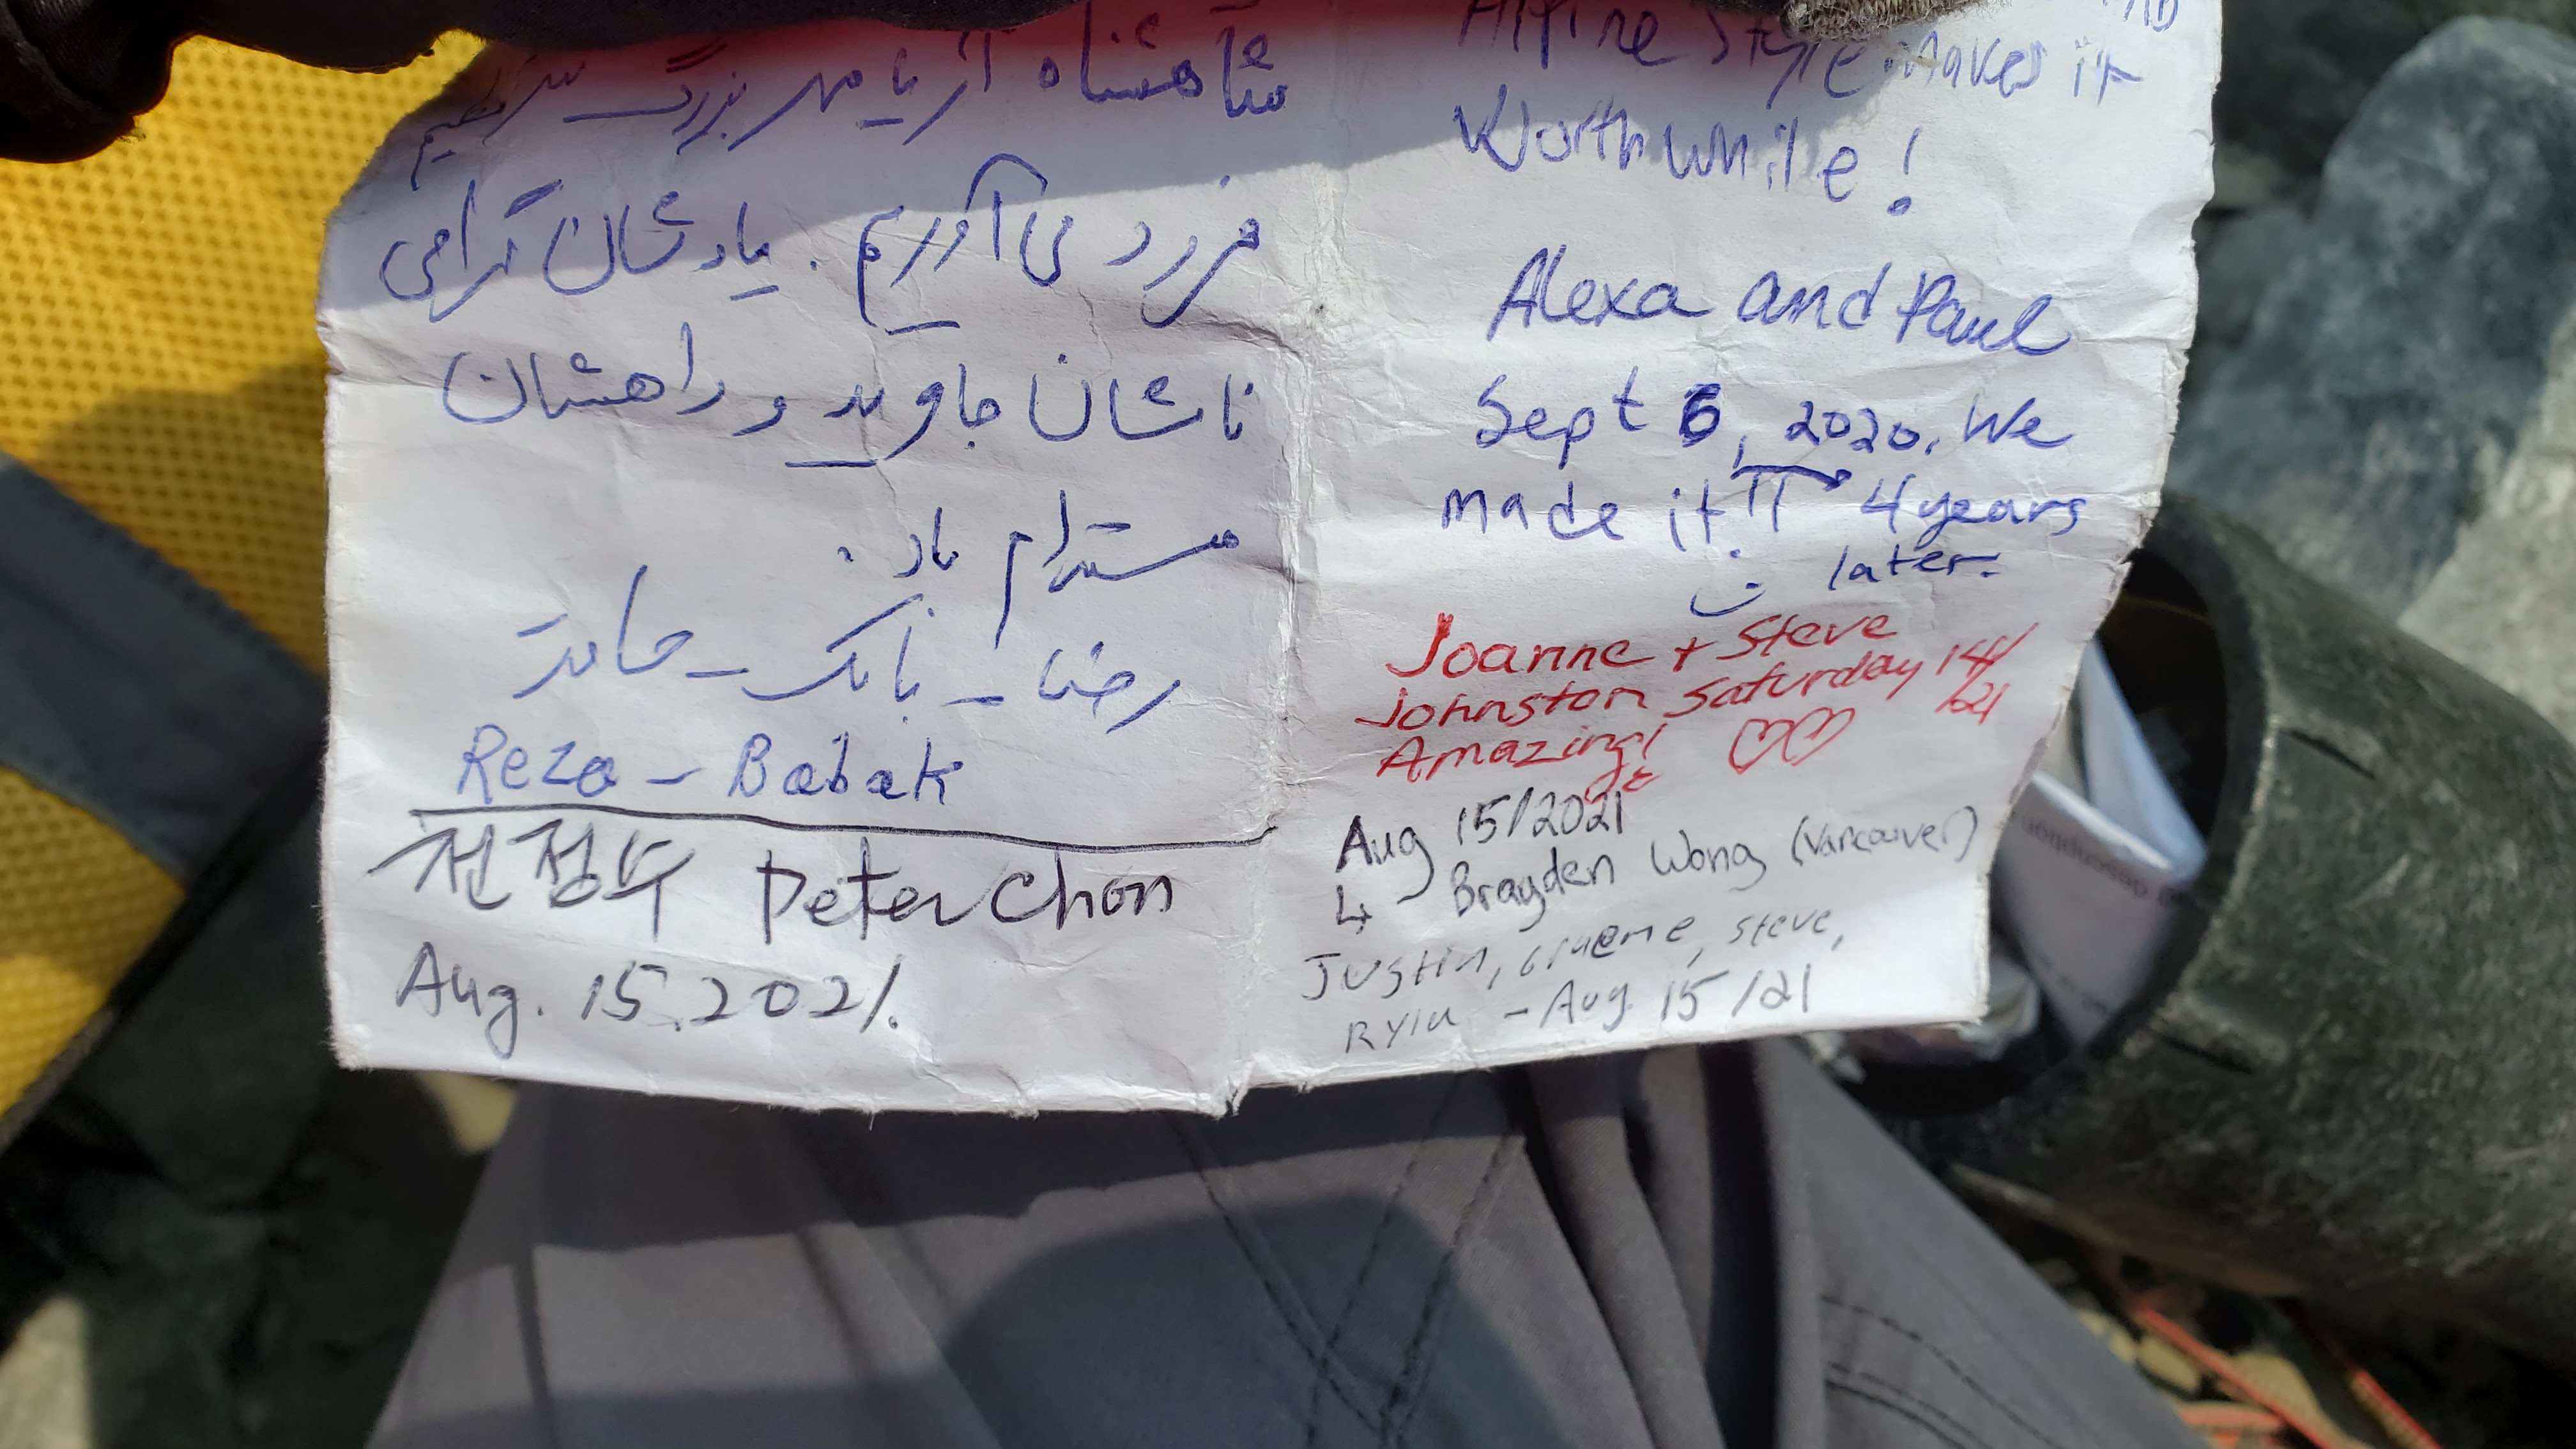 شاهنشاه آریامهر بزرگ سر تعظیم
فرود می‌آوریم. یادشان گرامی
نامشان جاوید و راهشان
مستدام باد.
رضا - بابک - حامد
Reza - Babak
전정두 Peter Chon
Aug. 15. 2021.
Alpine Style Makes it
Worthwhile!
Alexa and Paul
Sept 6, 2020. We
made it!! 4 years
later.
Joanne + Steve
Johnston Saturday 14/
/21
Amazing!
Aug 15/2021
Brayden Wong (Vancouver)
Justin, Graeme, Steve,
- Aug. 15/21